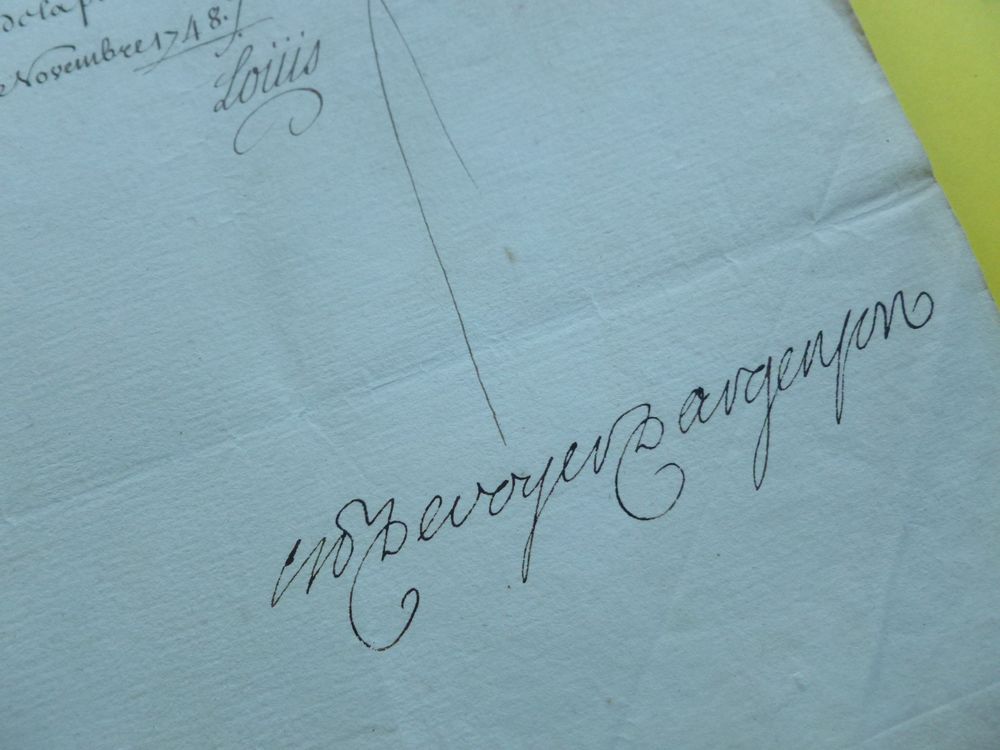 de la p
Novembre 1748.
Loüis
M De voyer D argenson